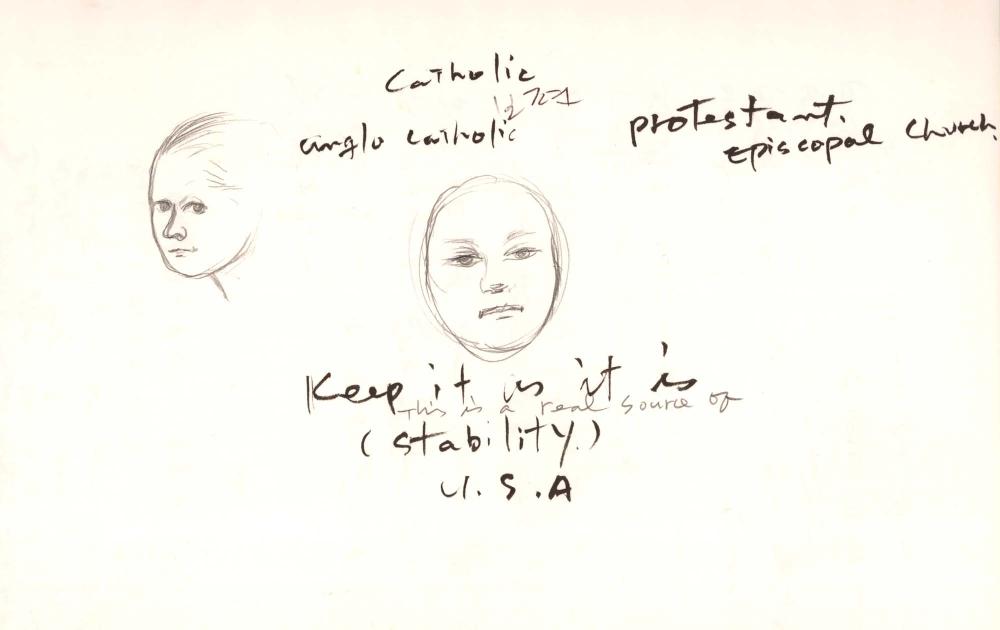 Catholic
anglo catholic
protestant.
Episcopal Church
Keep it as it is
This is a real source of
(stability.)
U.S.A